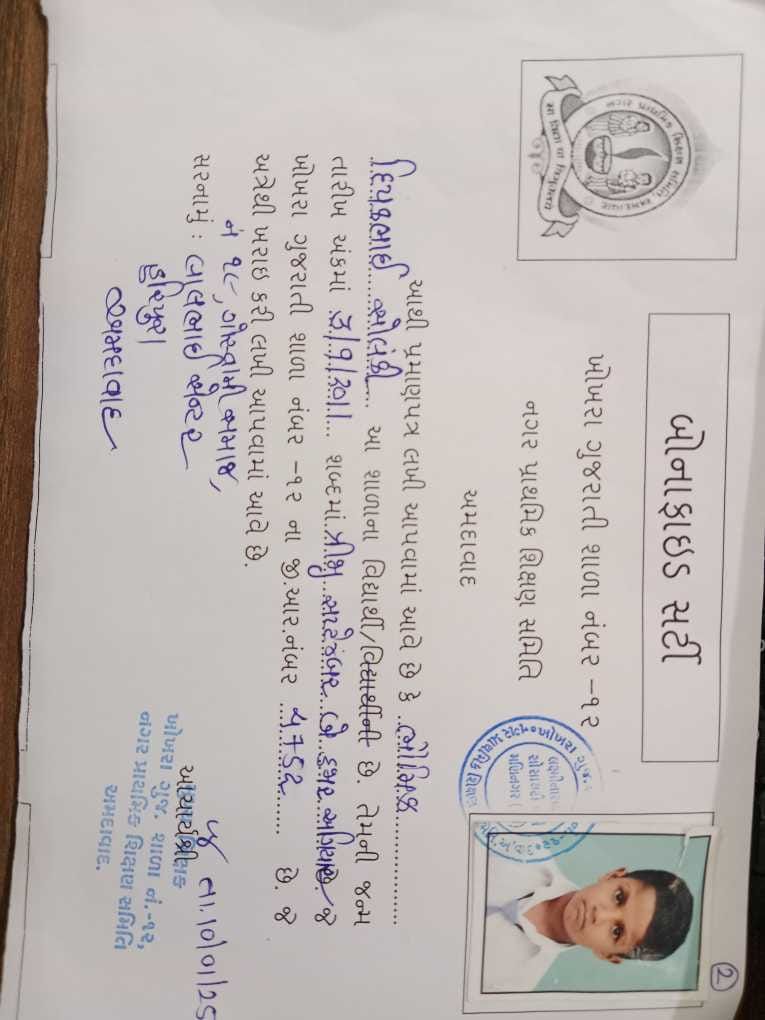 2
બોનાફાઇડ સર્ટી
ખોખરા ગુજરાતી શાળા નંબર -૧૨
નગર પ્રાથમિક શિક્ષણ સમિતિ
અમદાવાદ
આથી પ્રમાણપત્ર લખી આપવામાં આવે છે કે ..ભૌમિક
દિપકભાઈ સોલંકી.... આ શાળાના વિદ્યાર્થી/વિદ્યાર્થીની છે. તેમની જન્મ
તારીખ અંકમાં ૩/૯/૨૦૧૧... શબ્દમાં ત્રીજી સપ્ટેમ્બર બે હજાર અગિયાર છે. જે
ખોખરા ગુજરાતી શાળા નંબર -૧૨ ના જી.આર.નંબર ૫૭૮૨ છે. જે
અત્રેથી ખરાઇ કરી લખી આપવામાં આવે છે.
સરનામું :
નં ૧૮, ગોસ્વામી સમાજ,
લાલભાઈ સેન્ટર
હરિપુરા
અમદાવાદ
તા.10/01/25
આચાર્યશ્રી
ખોખરા ગુજ. શાળા નં.-૧૨,
નગર પ્રાથમિક શિક્ષણ સમિતિ
અમદાવાદ.